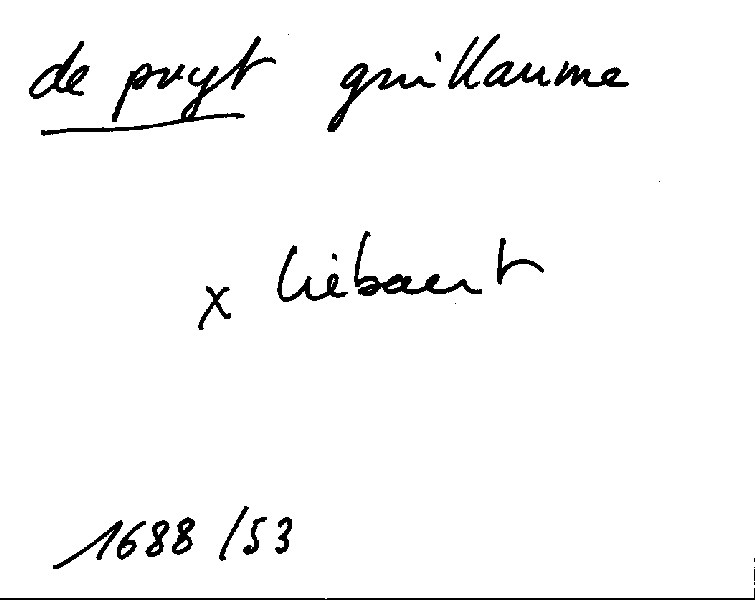 de puyt guillaume
x Liébaert
1688 / 53